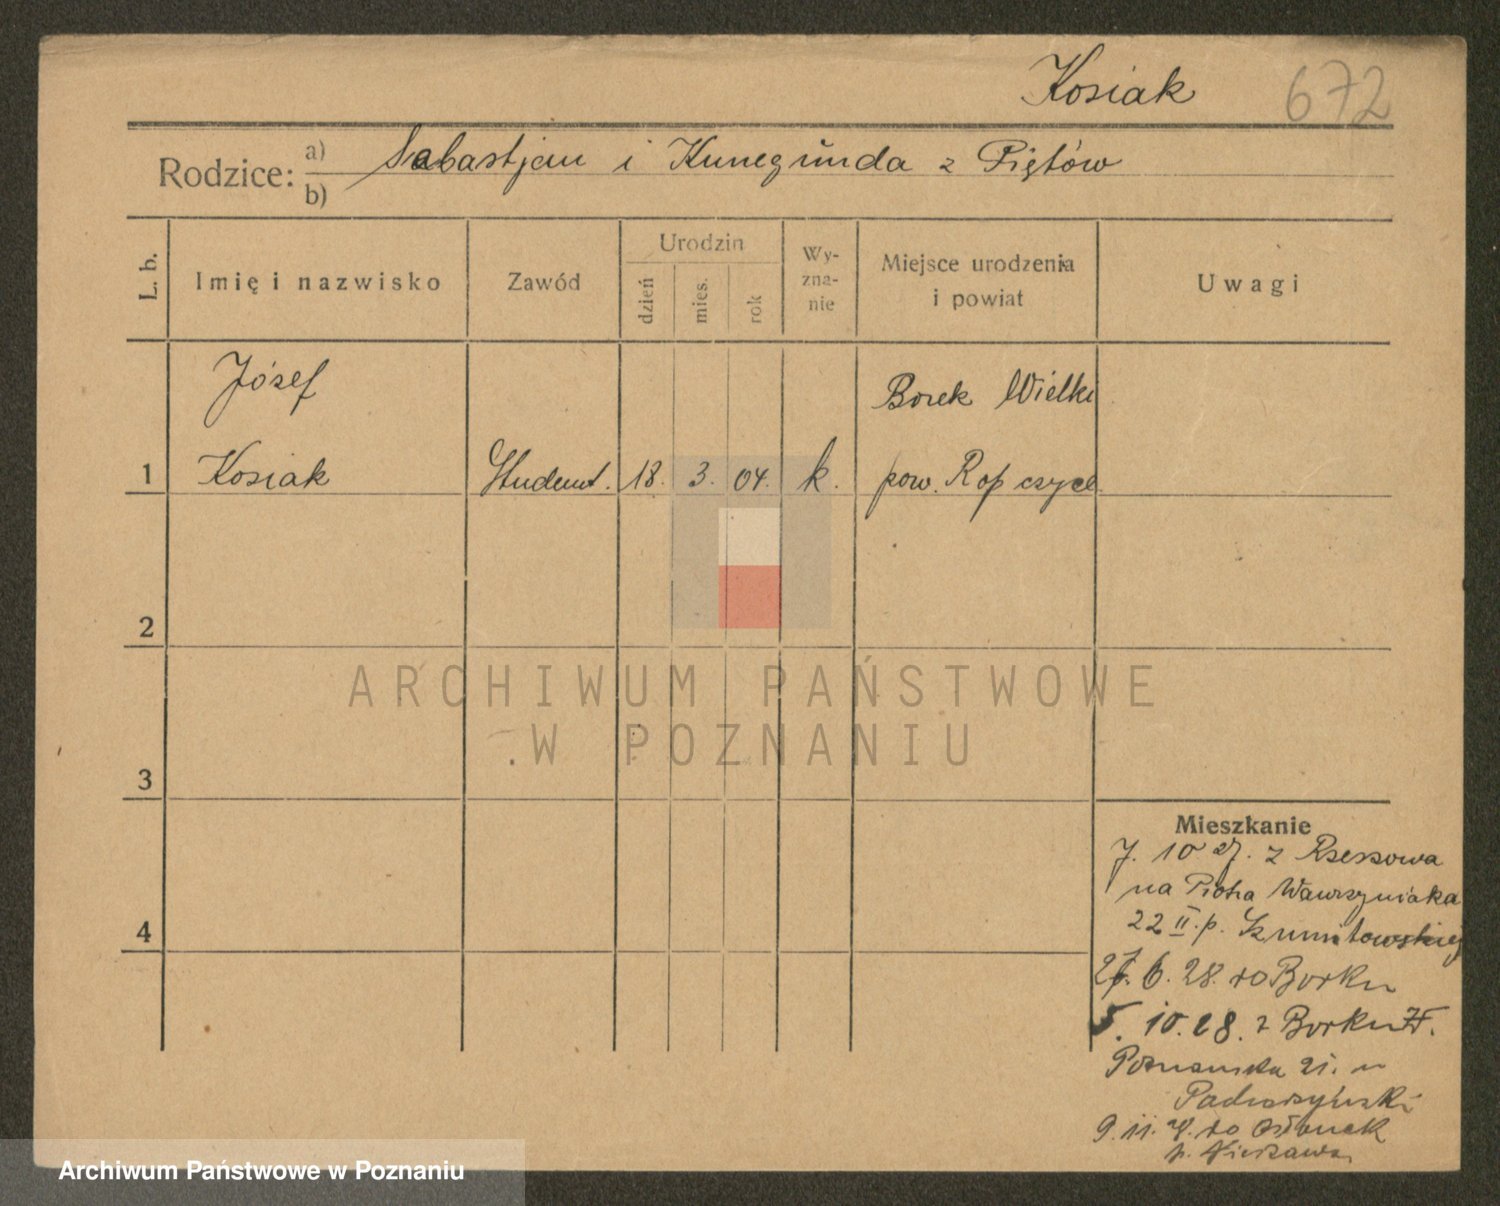 Kosiak 672
Rodzice: a) Sebastjan i Kunegunda z Piętów
b)
L. b. Imię i nazwisko Zawód Urodzin dzień mies. rok Wy-zna-nie Miejsce urodzenia i powiat Uwagi
Józef Borek Wielki
1 Kosiak Student. 18. 3. 04. k. pow. Ropczyce
2
ARCHIWUM PAŃSTWOWE
W POZNANIU
3
Mieszkanie
7. 10 27. z Rzeszowa
na Piotra Wawrzyniaka
4
22 II. p.
27. 6. 28. do Borku
5. 10. 28. z Borku
Poznańska 21. u
9. 11. do
p.
Archiwum Państwowe w Poznaniu